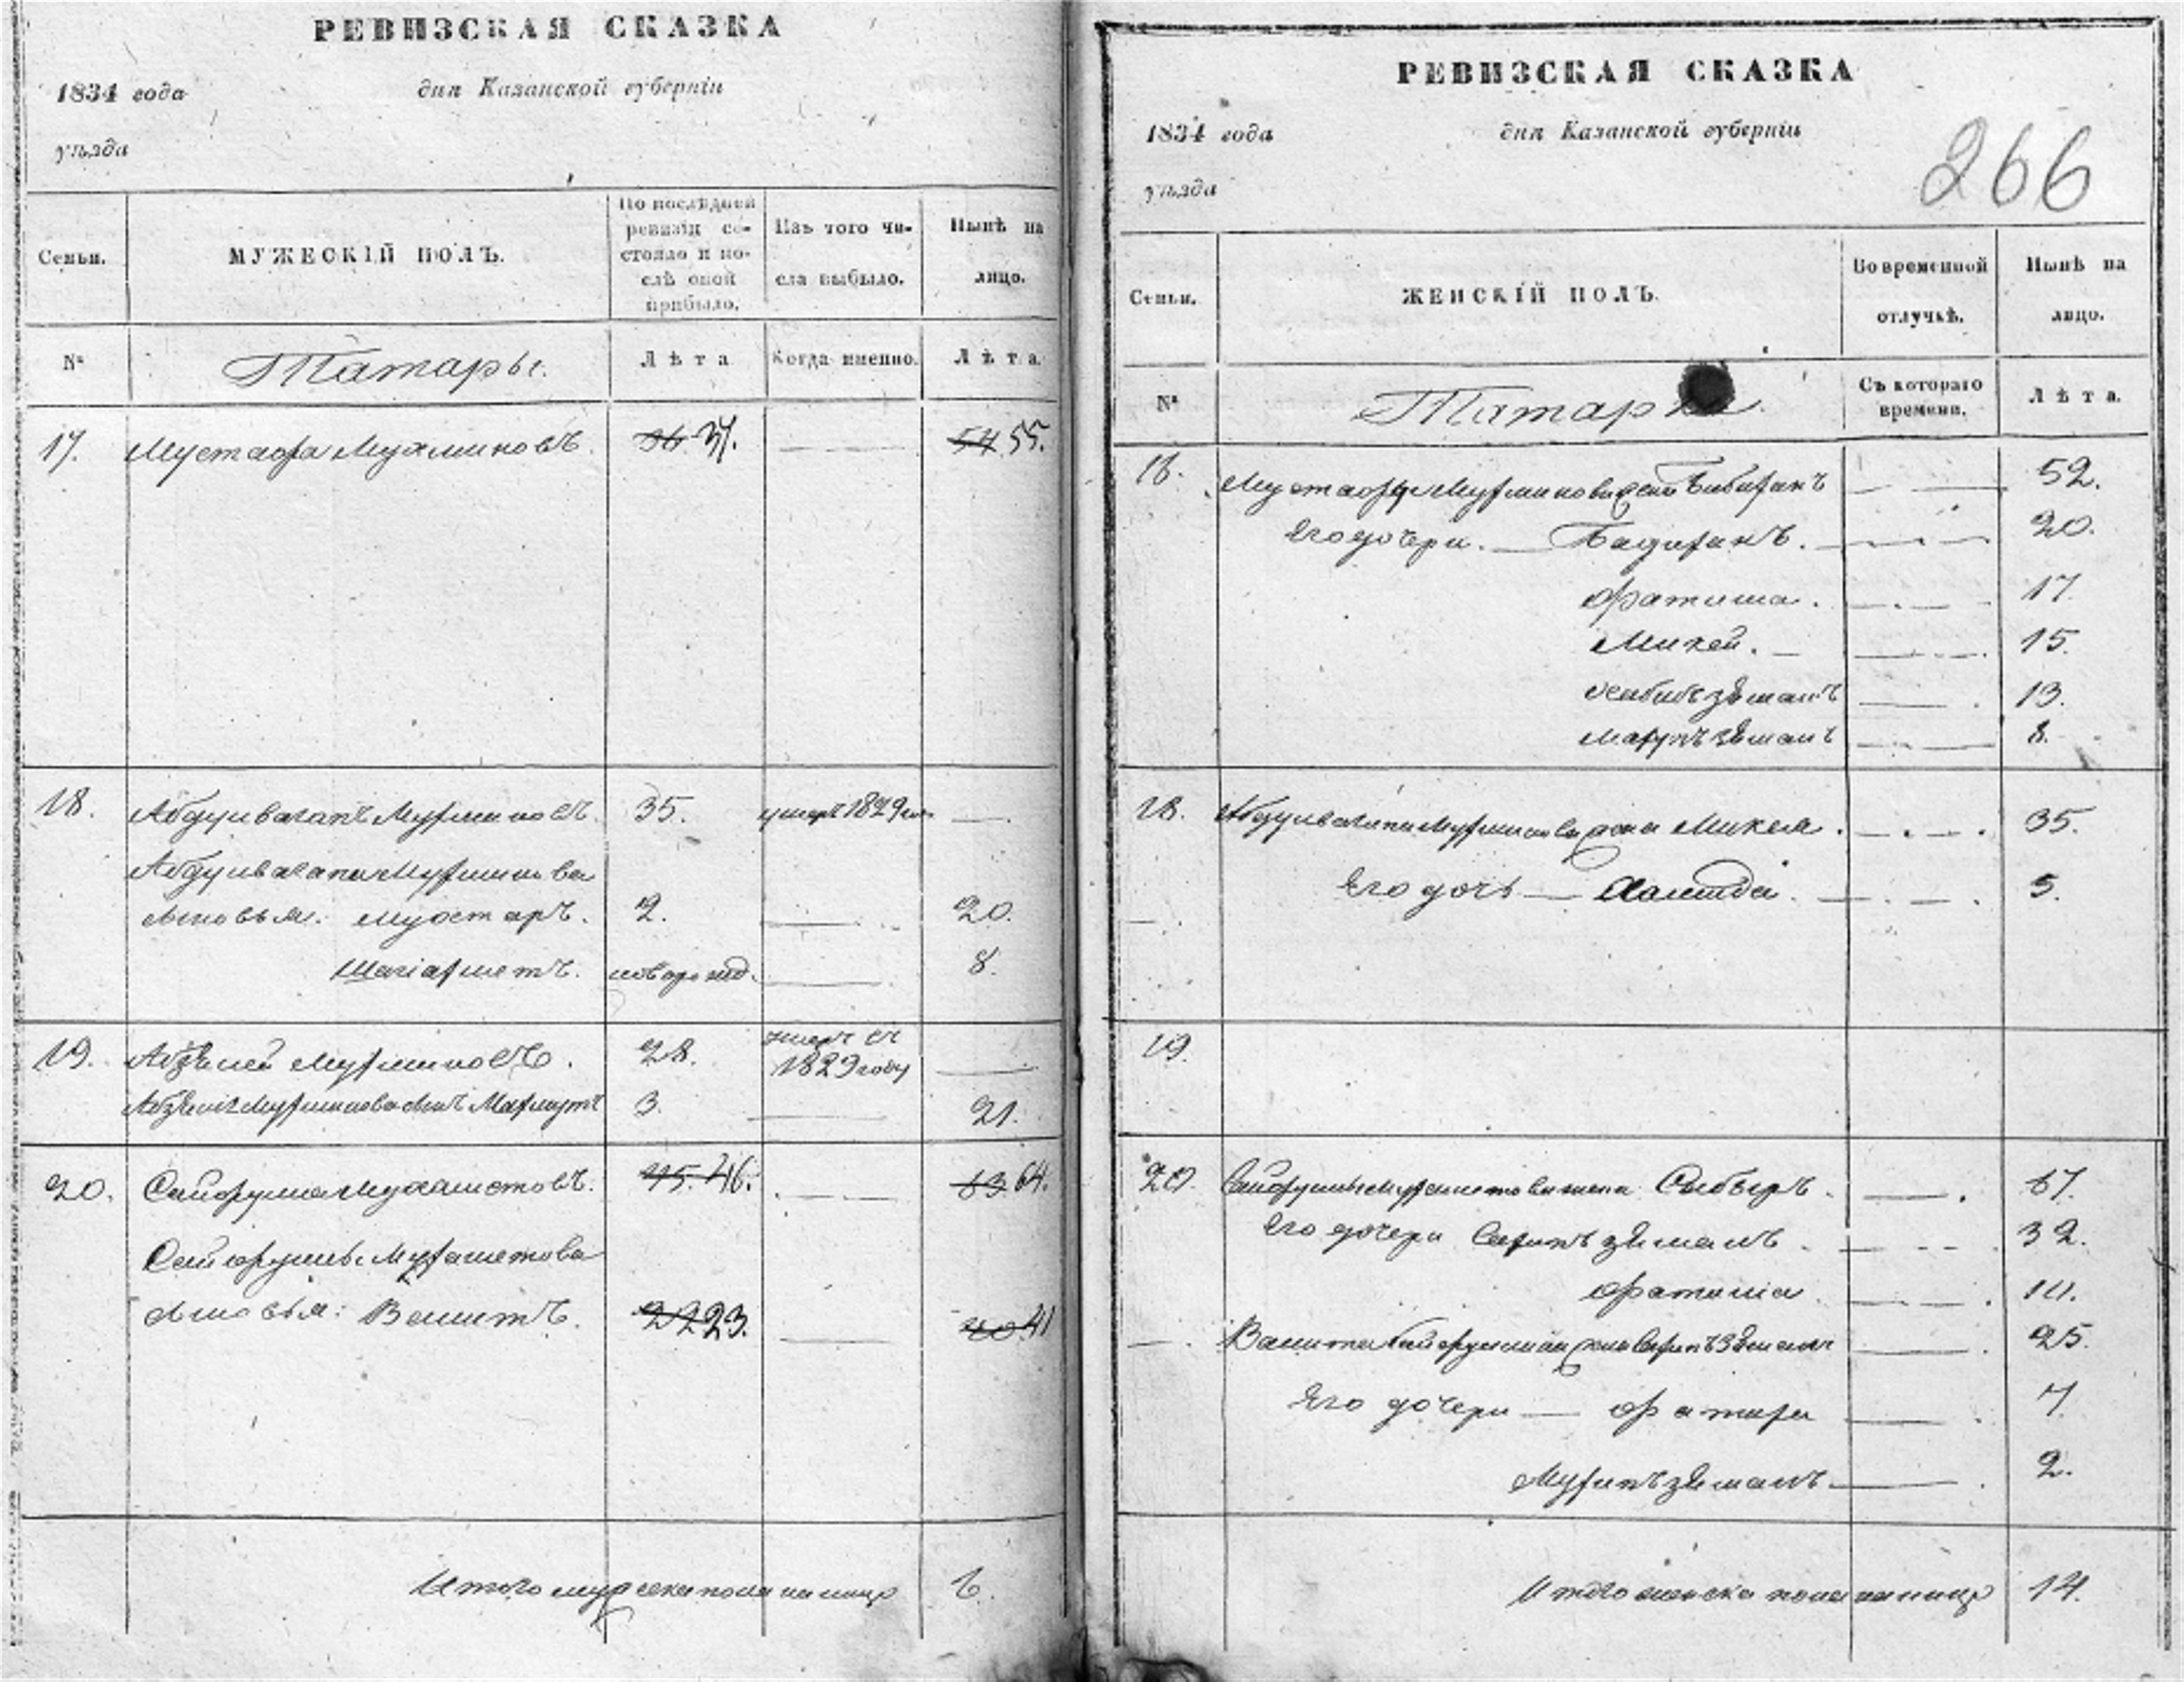 РЕВИЗСКАЯ СКАЗКА
1834 года дня Казанской губерніи
уѣзда
Семьи.
МУЖЕСКІЙ ПОЛЪ.
По послѣдней ревизіи состояло и послѣ оной прибыло.
Изъ того числа выбыло.
Нынѣ на лицо.
№
Татары.
Лѣта
Когда именно.
Лѣта.
17. Мустафа Мухминовъ. 36 37. 54 55.
18. Абдулвагапъ Мухминовъ. 35. умеръ 1829
Абдулвагапа Мухминова
сыновья: Мустаръ. 2. 20.
Шагіахметъ. новорожд. 8.
умеръ въ
19. Мухминовъ. 28. 1829 году
Мухминова сынъ Махмутъ 3. 21.
20. Сайфулла Мухаметовъ. 45. 46. 63 64.
Сайфуллы Мухаметова
сыновья: Валитъ. 22 23. 40 41
Итого мужеска пола на лицо 6.
РЕВИЗСКАЯ СКАЗКА
1834 года дня Казанской губерніи
уѣзда
266
Семьи.
ЖЕНСКІЙ ПОЛЪ.
Во временной отлучкѣ.
Нынѣ на лицо.
№
Татарки.
Съ котораго времени.
Лѣта.
Мустафы Мухминова жена Бибиханъ 52.
Его дочери. Бадиханъ. 20.
Фатима. 17.
15.
13.
8.
18. Абдулвагапа Мухминова жена 35.
Его дочь Халитда. 5.
19.
20. Сайфуллы Мухаметова жена 67.
Его дочери 32.
Фатима
Валита жена 25.
Его дочери 7.
2.
Итого женска пола на лицо 14.